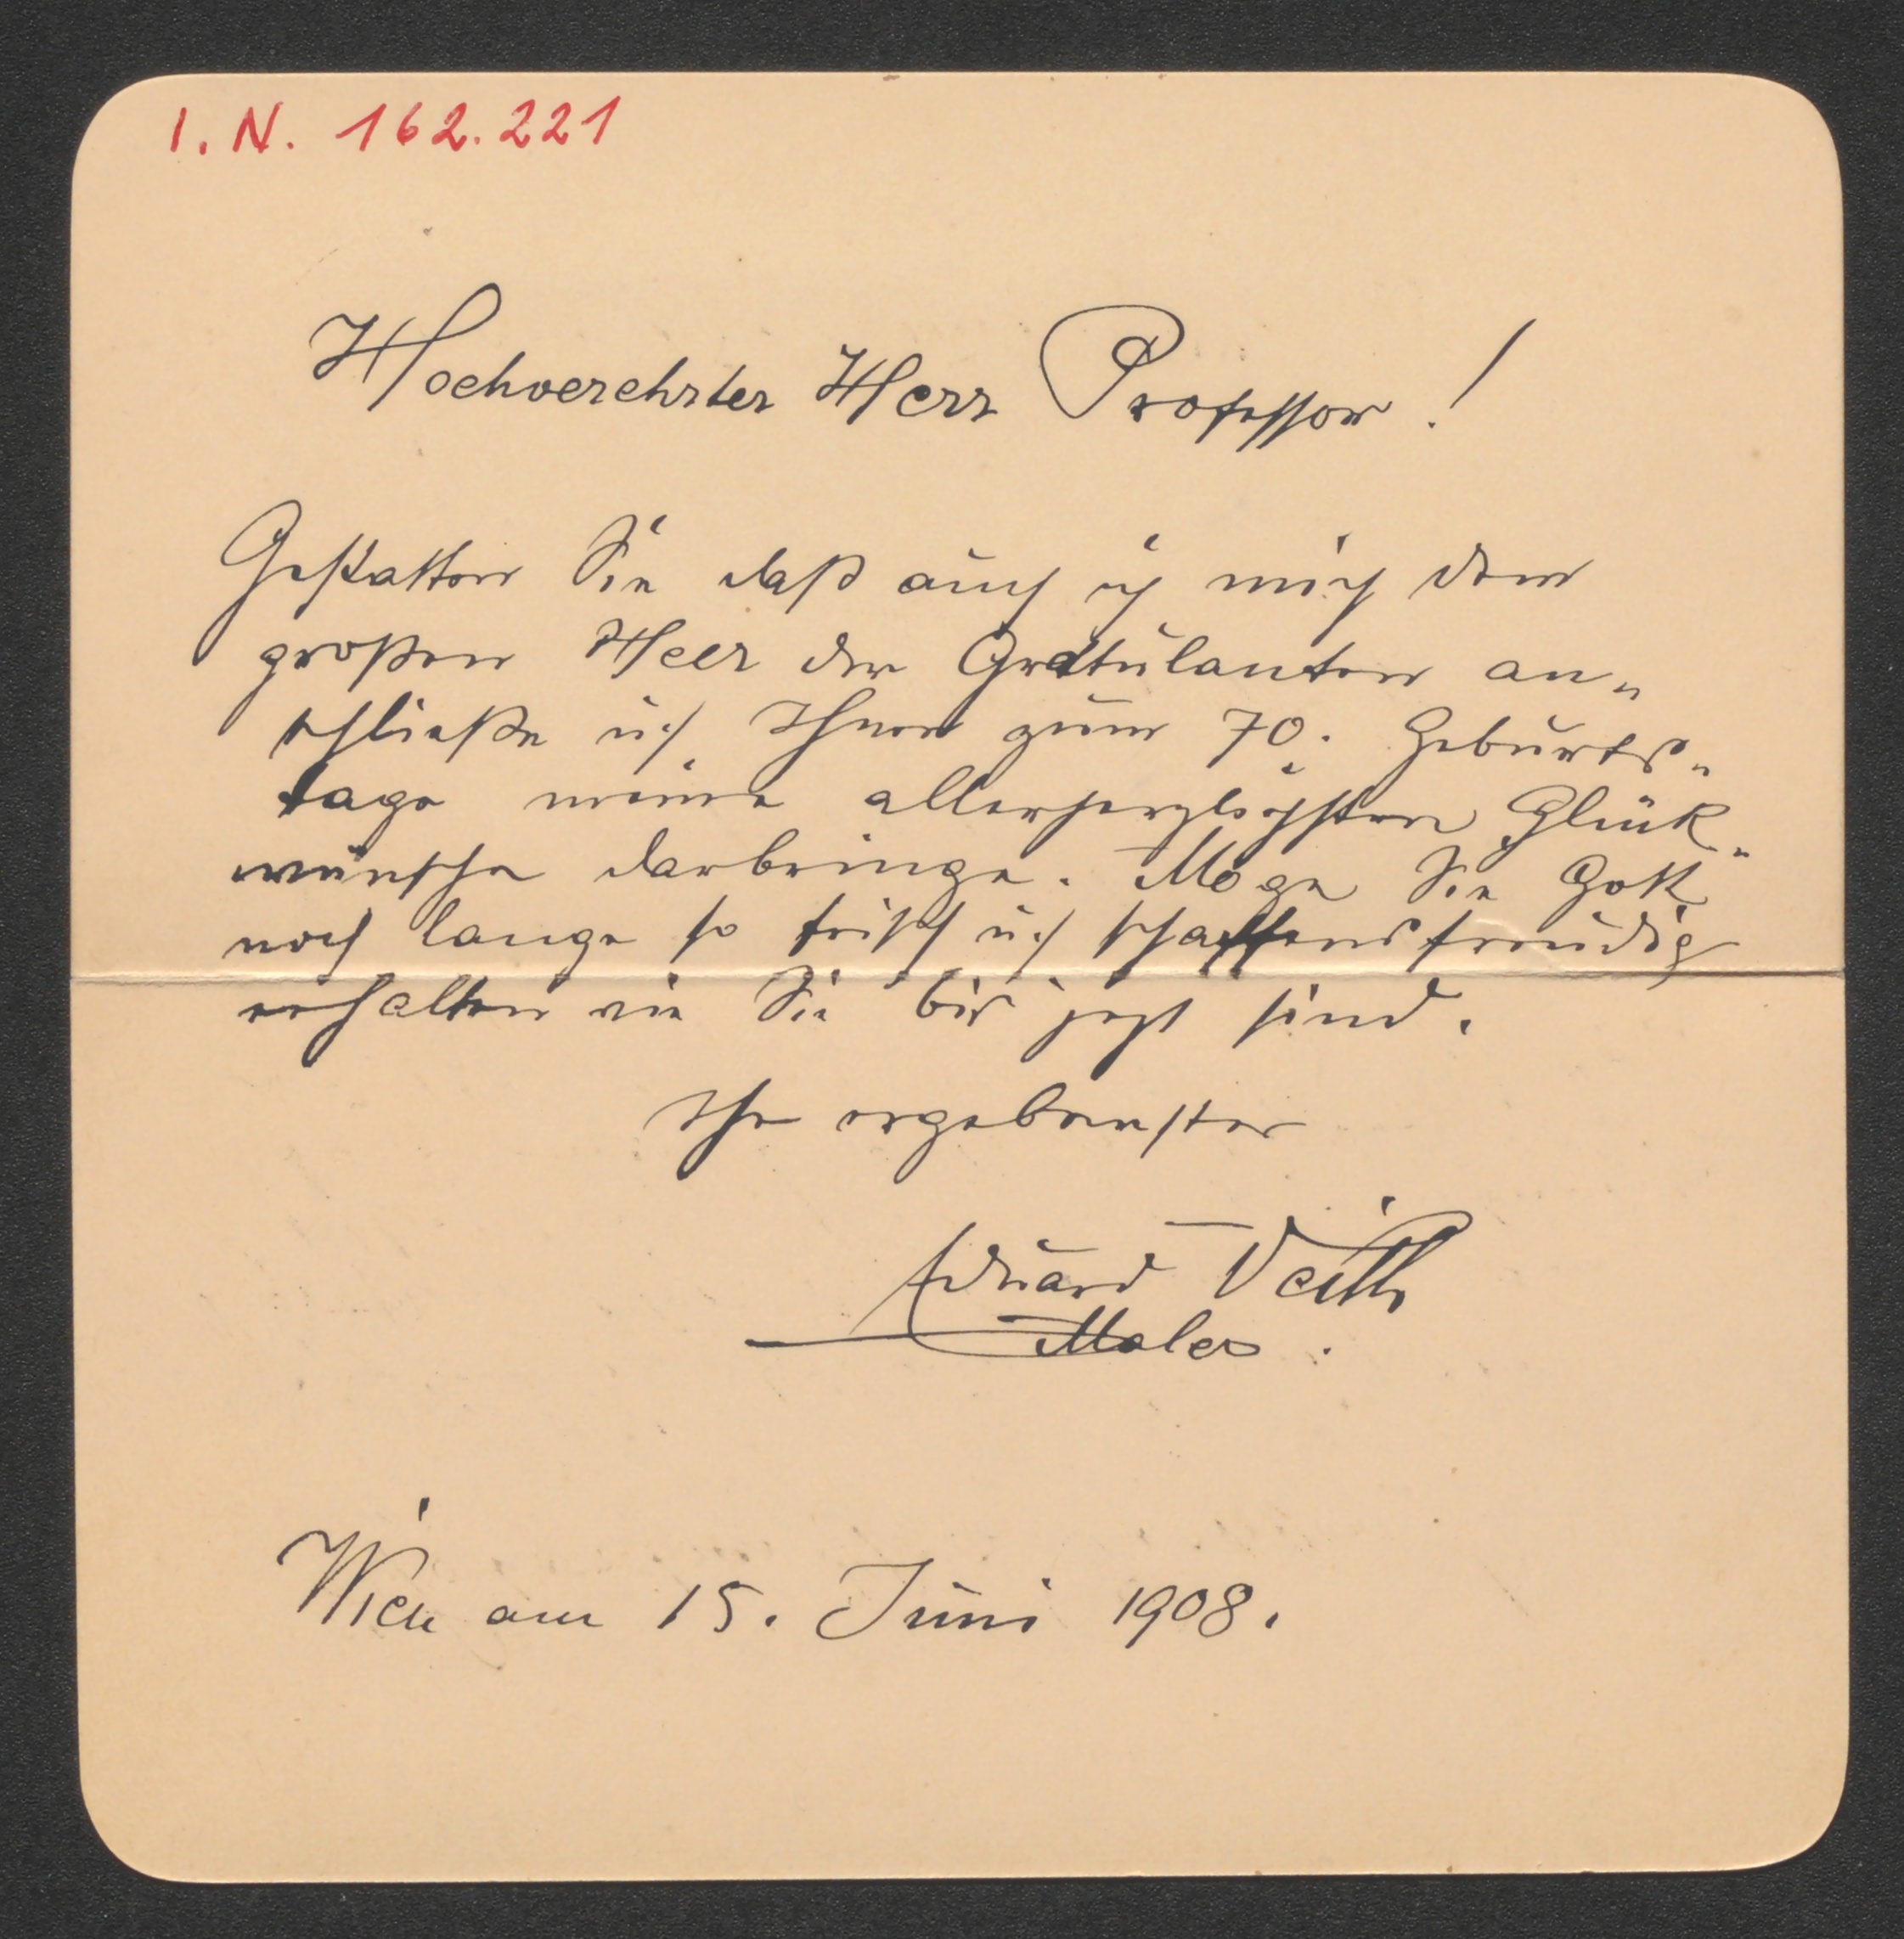 I. N. 162.221
Hochverehrter Herr Professor!
Gestatten Sie daß auch ich mich dem
großen Heer der Gratulanten an„
schließe u. Ihnen zum 70. Geburts„
tage meine allerherzlichsten Glück„
wünsche darbringe. Möge Sie Gott
noch lange so frisch u. schaffensfreudig
erhalten wie Sie bis jezt sind.
Ihr ergebenster
Eduard Veith
Maler.
Wien am 15. Juni 1908.